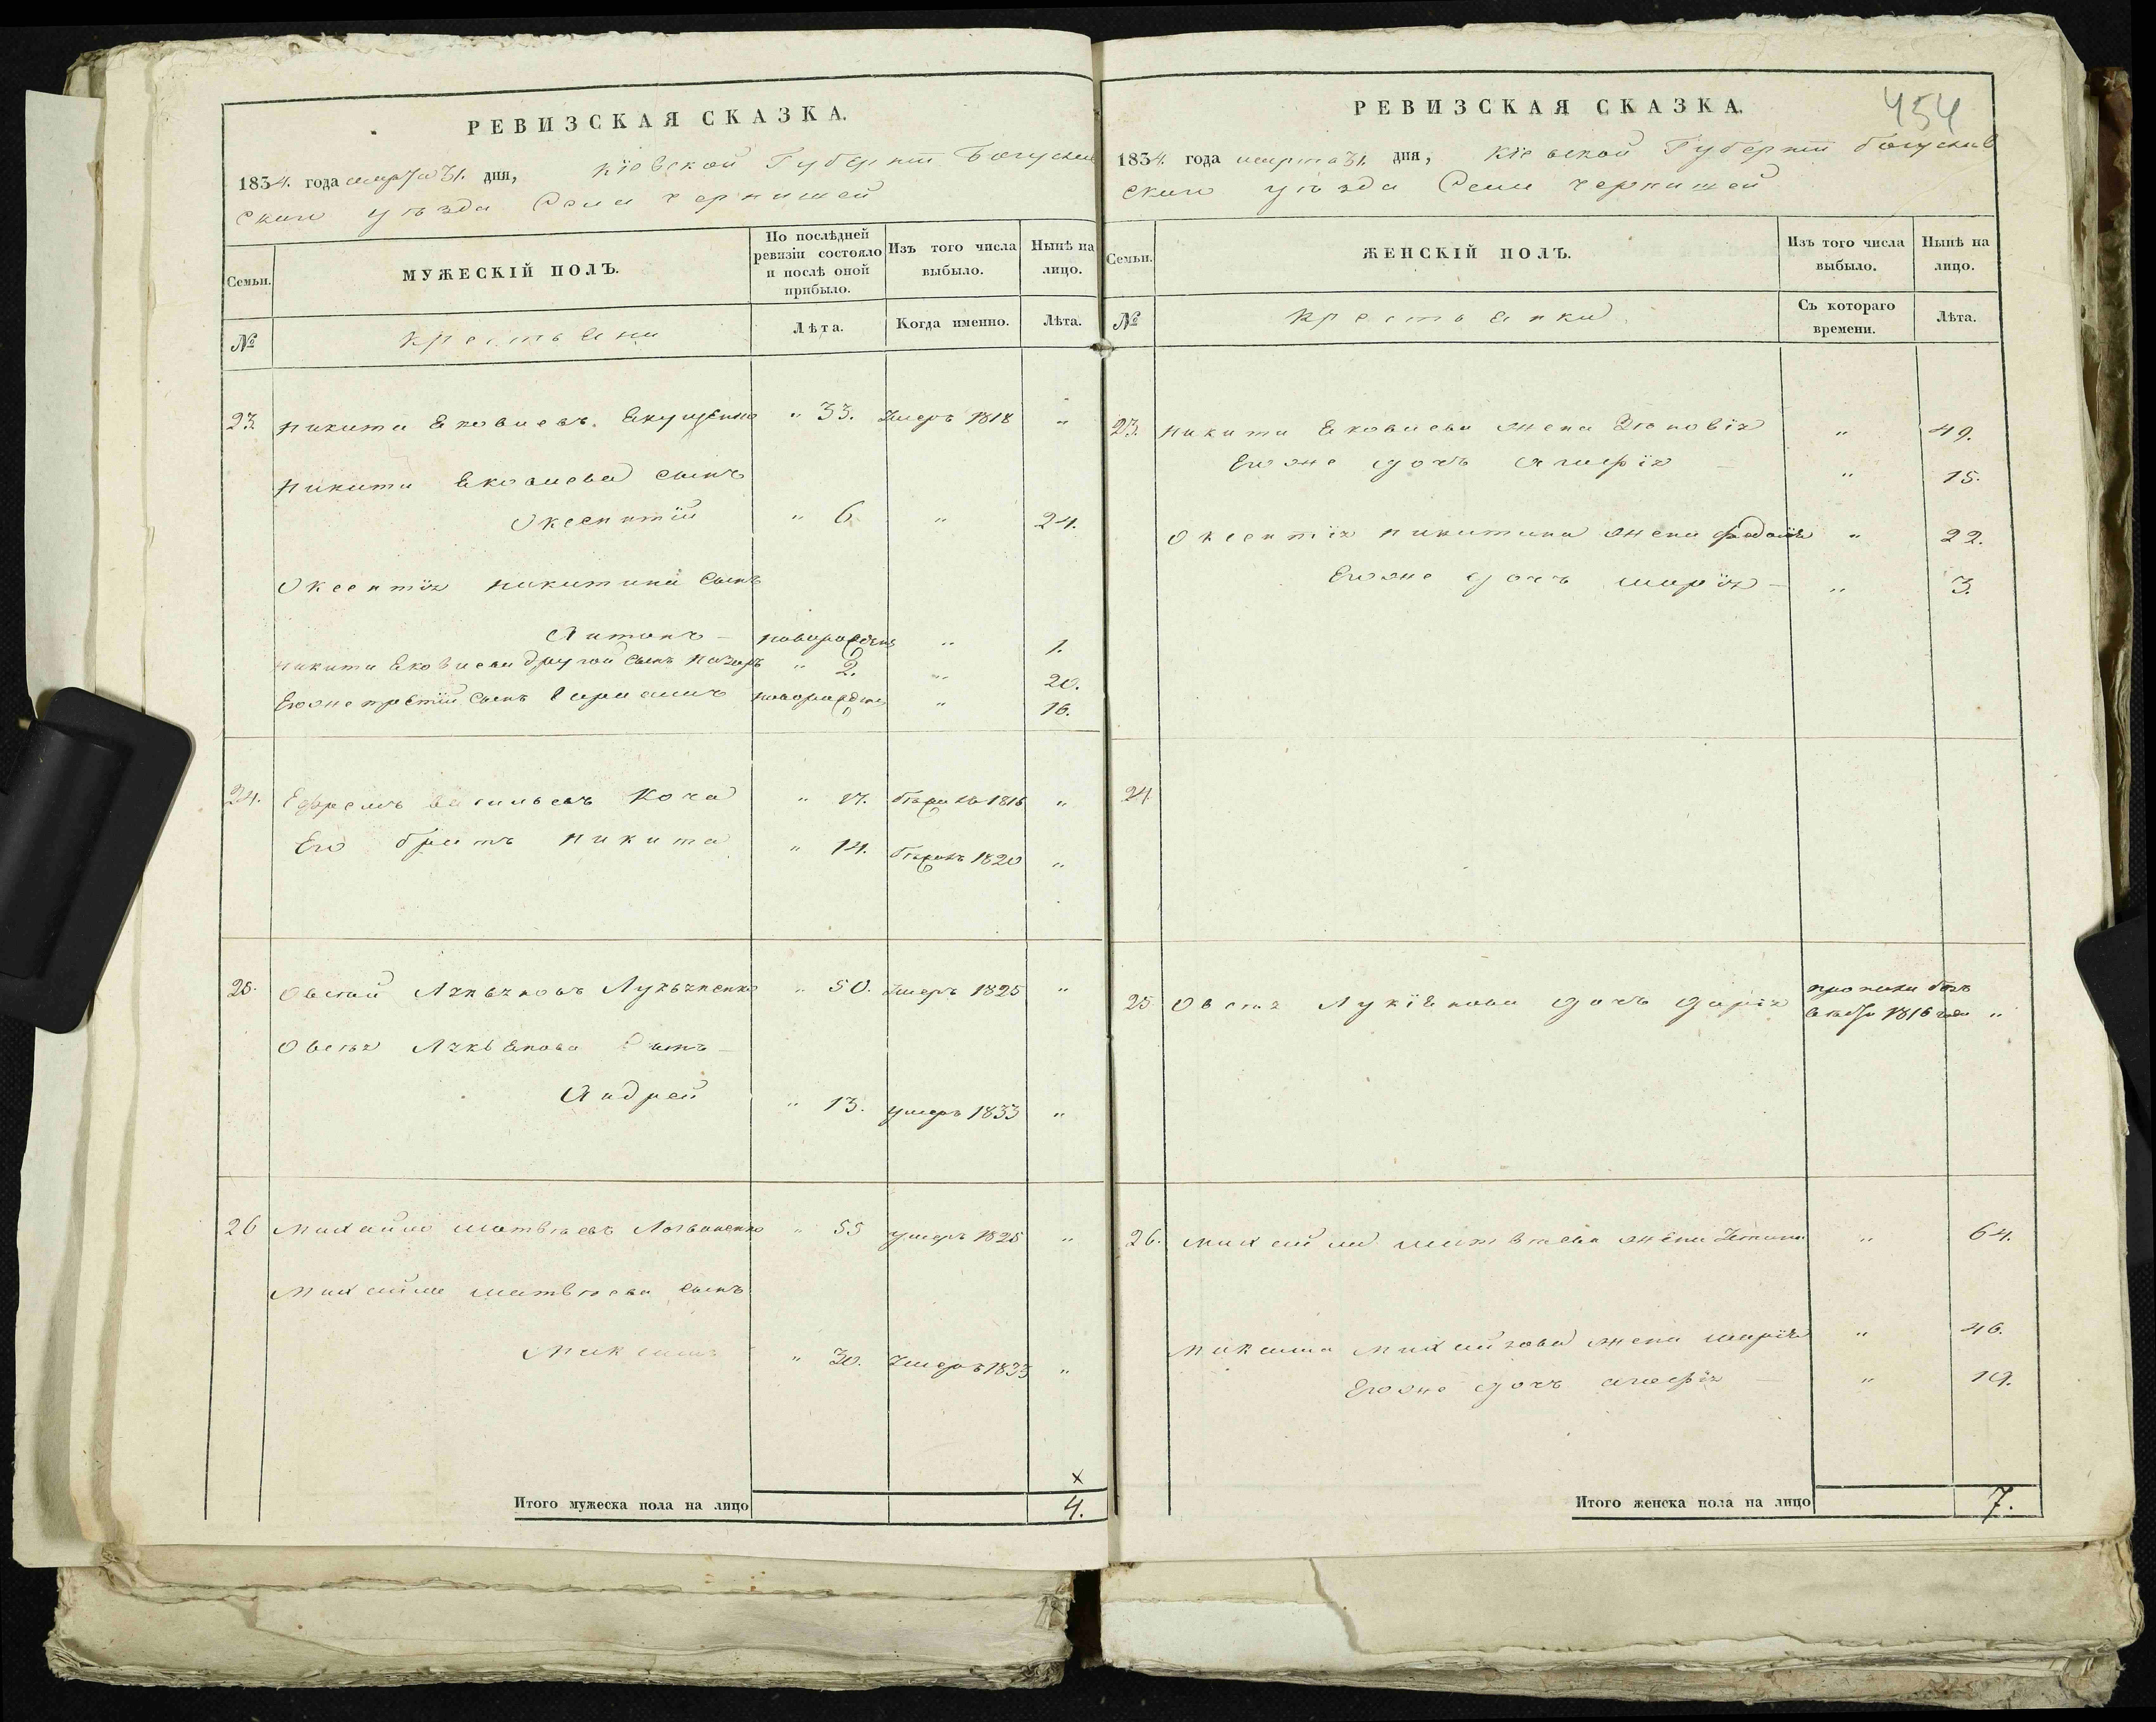 РЕВИЗСКАЯ СКАЗКА.
1834. года марта 31. дня, Кіевской Губерніи Богуслав
скаго уѣзда Села
Семьи.
МУЖЕСКІЙ ПОЛЪ.
По послѣдней
ревизіи состояло
и послѣ оной
прибыло.
Изъ того числа
выбыло.
Нынѣ на
лицо.
№
крестьяни
Лѣта.
Когда именно.
Лѣта.
23 Никита Яковлевъ „ 33. Умеръ 1818 „
Никиты Яковлева сынъ
Оксентій „ 6 „ 24.
Оксентія Никитина сынъ
Антонъ — новорожденъ „ 1.
Никиты Яковлева другой сынъ Назаръ „ 2. „ 20.
Егоже третій сынъ новорожденъ „ 16.
24. Ефремъ Васильевъ Коча „ 17. бѣжалъ 1816 „
Его братъ Никита „ 14. бѣжалъ 1820 „
25. Овсѣй „ 50. Умеръ 1825 „
Овсѣя сынъ —
Андрей „ 13. умеръ 1833 „
26 Михайло Матвѣевъ „ 55 умеръ 1825 „
Михайла Матвѣева сынъ
Максимъ „ 30. Умеръ 1833 „
Итого мужеска пола на лицо 4.
454
РЕВИЗСКАЯ СКАЗКА.
1834. года марта 31. дня, Кіевской Губерніи Богуслав
скаго уѣзда Села
Семьи.
ЖЕНСКІЙ ПОЛЪ.
Изъ того числа
выбыло.
Нынѣ на
лицо.
№
крестьянки
Съ котораго
времени.
Лѣта.
23. Никиты Яковлева жена Зѣновія „ 49.
Егоже дочь Агафія — „ 15.
Оксентія Никитина жена „ 22.
Егоже дочь Марія — „ 3.
24
25 Овсѣя дочь Дарія
1816 года „
26. Михайла Матвѣева жена „ 64.
Максима Михайлова жена Марія „ 46.
Егоже дочь Агафія — „ 19.
Итого женска пола на лицо 7.